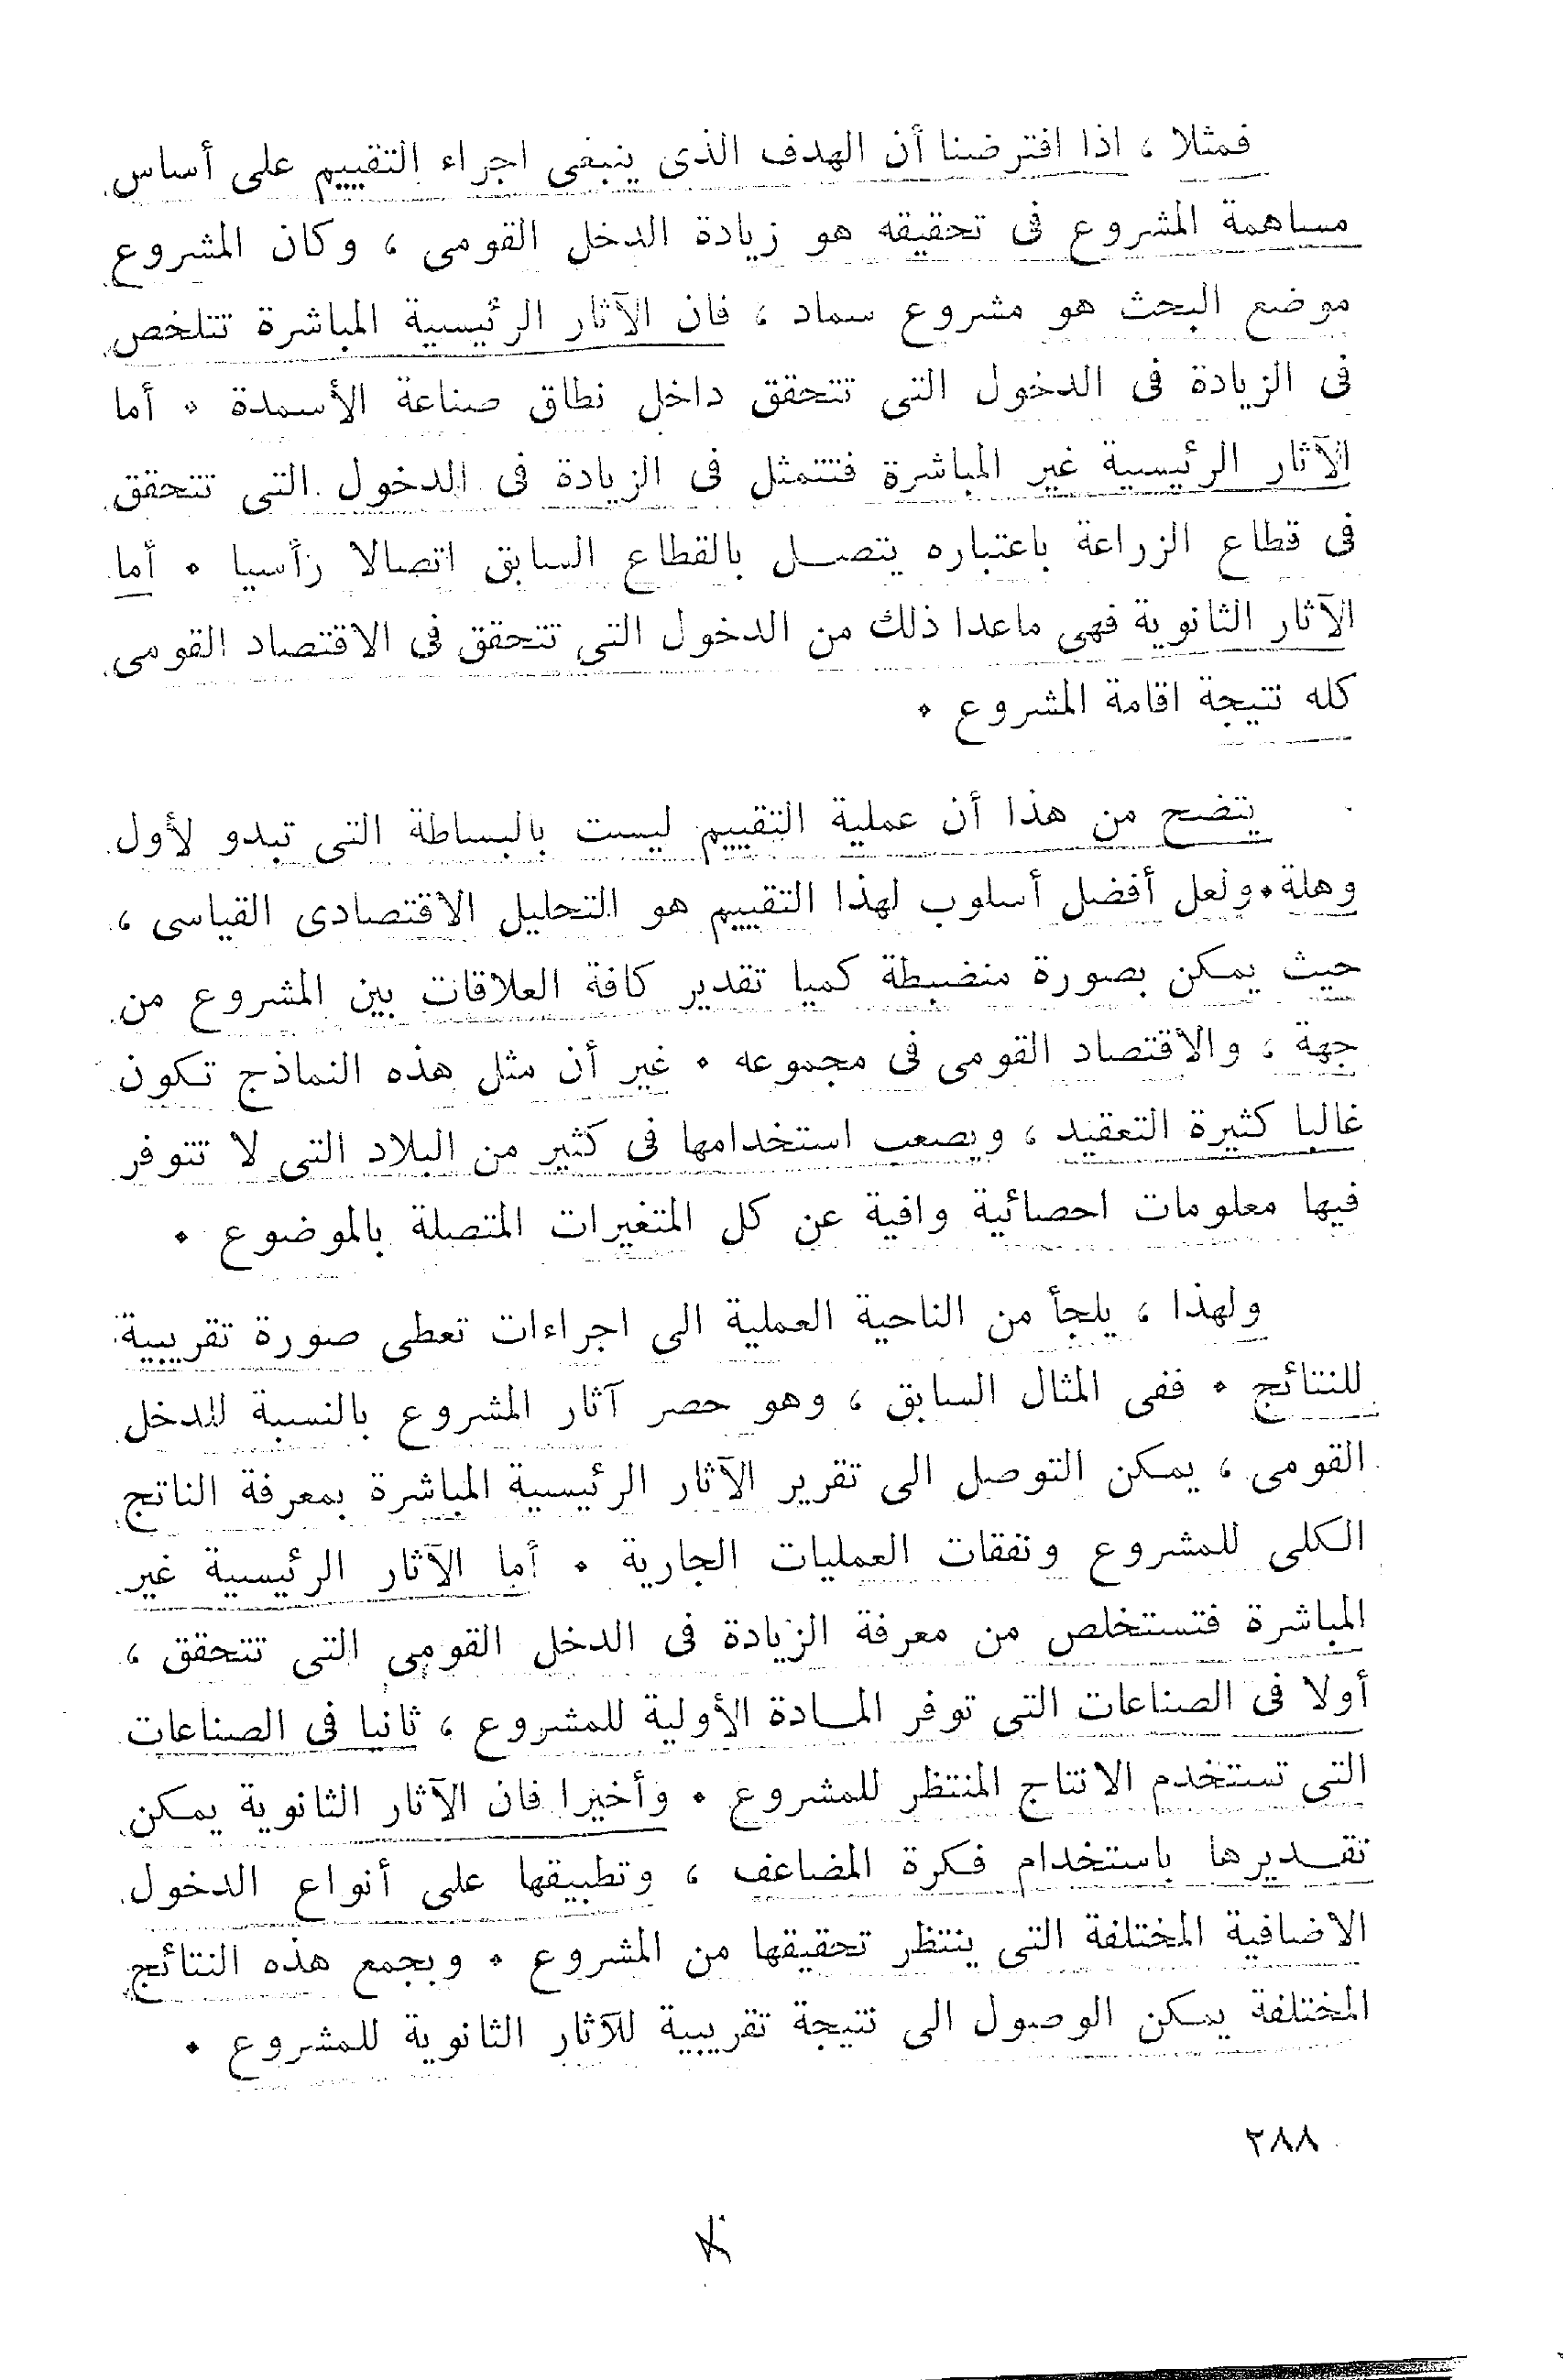 فمثلا ، اذا افترضنا أن الهدف الذى ينبغى اجراء التقييم على أساس
مساهمة المشروع فى تحقيقه هو زيادة الدخل القومى ، وكان المشروع
موضع البحث هو مشروع سماد ، فان الآثار الرئيسية المباشرة تتلخص
فى الزيادة فى الدخول التى تتحقق داخل نطاق صناعة الأسمدة ٠ أما
الآثار الرئيسية غير المباشرة فتتمثل فى الزيادة فى الدخول التى تتحقق
فى قطاع الزراعة باعتباره يتصل بالقطاع السابق اتصالا رأسيا ٠ أما
الآثار الثانوية فهى ماعدا ذلك من الدخول التى تتحقق فى الاقتصاد القومى
كله نتيجة اقامة المشروع ٠
يتضح من هذا أن عملية التقييم ليست بالبساطة التى تبدو لأول
وهلة٠ولعل أفضل أسلوب لهذا التقييم هو التحليل الاقتصادى القياسى ،
حيث يمكن بصورة منضبطة كميا تقدير كافة العلاقات بين المشروع من
جهة ، والاقتصاد القومى فى مجموعه ٠ غير أن مثل هذه النماذج تكون
غالبا كثيرة التعقيد ، ويصعب استخدامها فى كثير من البلاد التى لا تتوفر
فيها معلومات احصائية وافية عن كل المتغيرات المتصلة بالموضوع ٠
ولهذا ، يلجأ من الناحية العملية الى اجراءات تعطى صورة تقريبية
للنتائج ٠ ففى المثال السابق ، وهو حصر آثار المشروع بالنسبة للدخل
القومى ، يمكن التوصل الى تقرير الآثار الرئيسية المباشرة بمعرفة الناتج
الكلى للمشروع ونفقات العمليات الجارية ٠ أما الآثار الرئيسية غير
المباشرة فتستخلص من معرفة الزيادة فى الدخل القومى التى تتحقق ،
أولا فى الصناعات التى توفر المادة الأولية للمشروع ، ثانيا فى الصناعات
التى تستخدم الانتاج المنتظر للمشروع ٠ وأخيرا فان الآثار الثانوية يمكن
تقديرها باستخدام فكرة المضاعف ، وتطبيقها على أنواع الدخول
الاضافية المختلفة التى ينتظر تحقيقها من المشروع ٠ وبجمع هذه النتائج
المختلفة يمكن الوصول الى نتيجة تقريبية للآثار الثانوية للمشروع ٠
٢٨٨